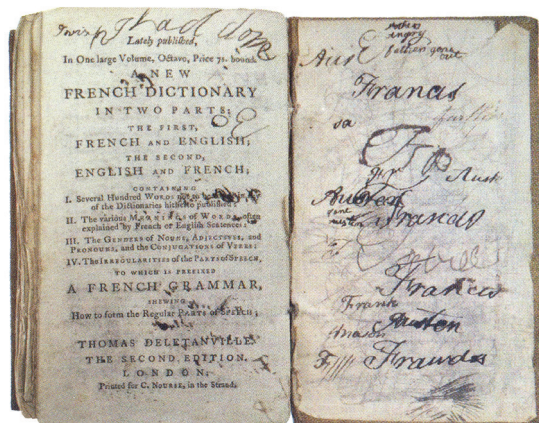 I wish I had done
Lately published,
In One large Volume, Octavo, Price 7s. bound.
A NEW
FRENCH DICTIONARY
IN TWO PARTS;
THE FIRST,
FRENCH AND ENGLISH;
THE SECOND,
ENGLISH AND FRENCH;
CONTAINING
I. Several Hundred WORDS not to be found in
of the Dictionaries hitherto published;
II. The various MEANINGS of WORDS, often
explained by French or English Sentences:
III. The GENDERS of NOUNS, ADJECTIVES, and
PRONOUNS, and the CONJUGATIONS of VERBS;
IV. The IRREGULARITIES of the PARTS of SPEECH,
TO WHICH IS PREFIXED
A FRENCH GRAMMAR,
SHEWING
How to form the Regular PARTS of SPEECH;
THOMAS DELETANVILLE
THE SECOND EDITION.
LONDON:
Printed for C. NOURSE, in the Strand.
Mother
angry
father gone
out
Aus
Francis
F
Aust
Austen
Jane
Austen
Francis
Francis
Frank
Austen